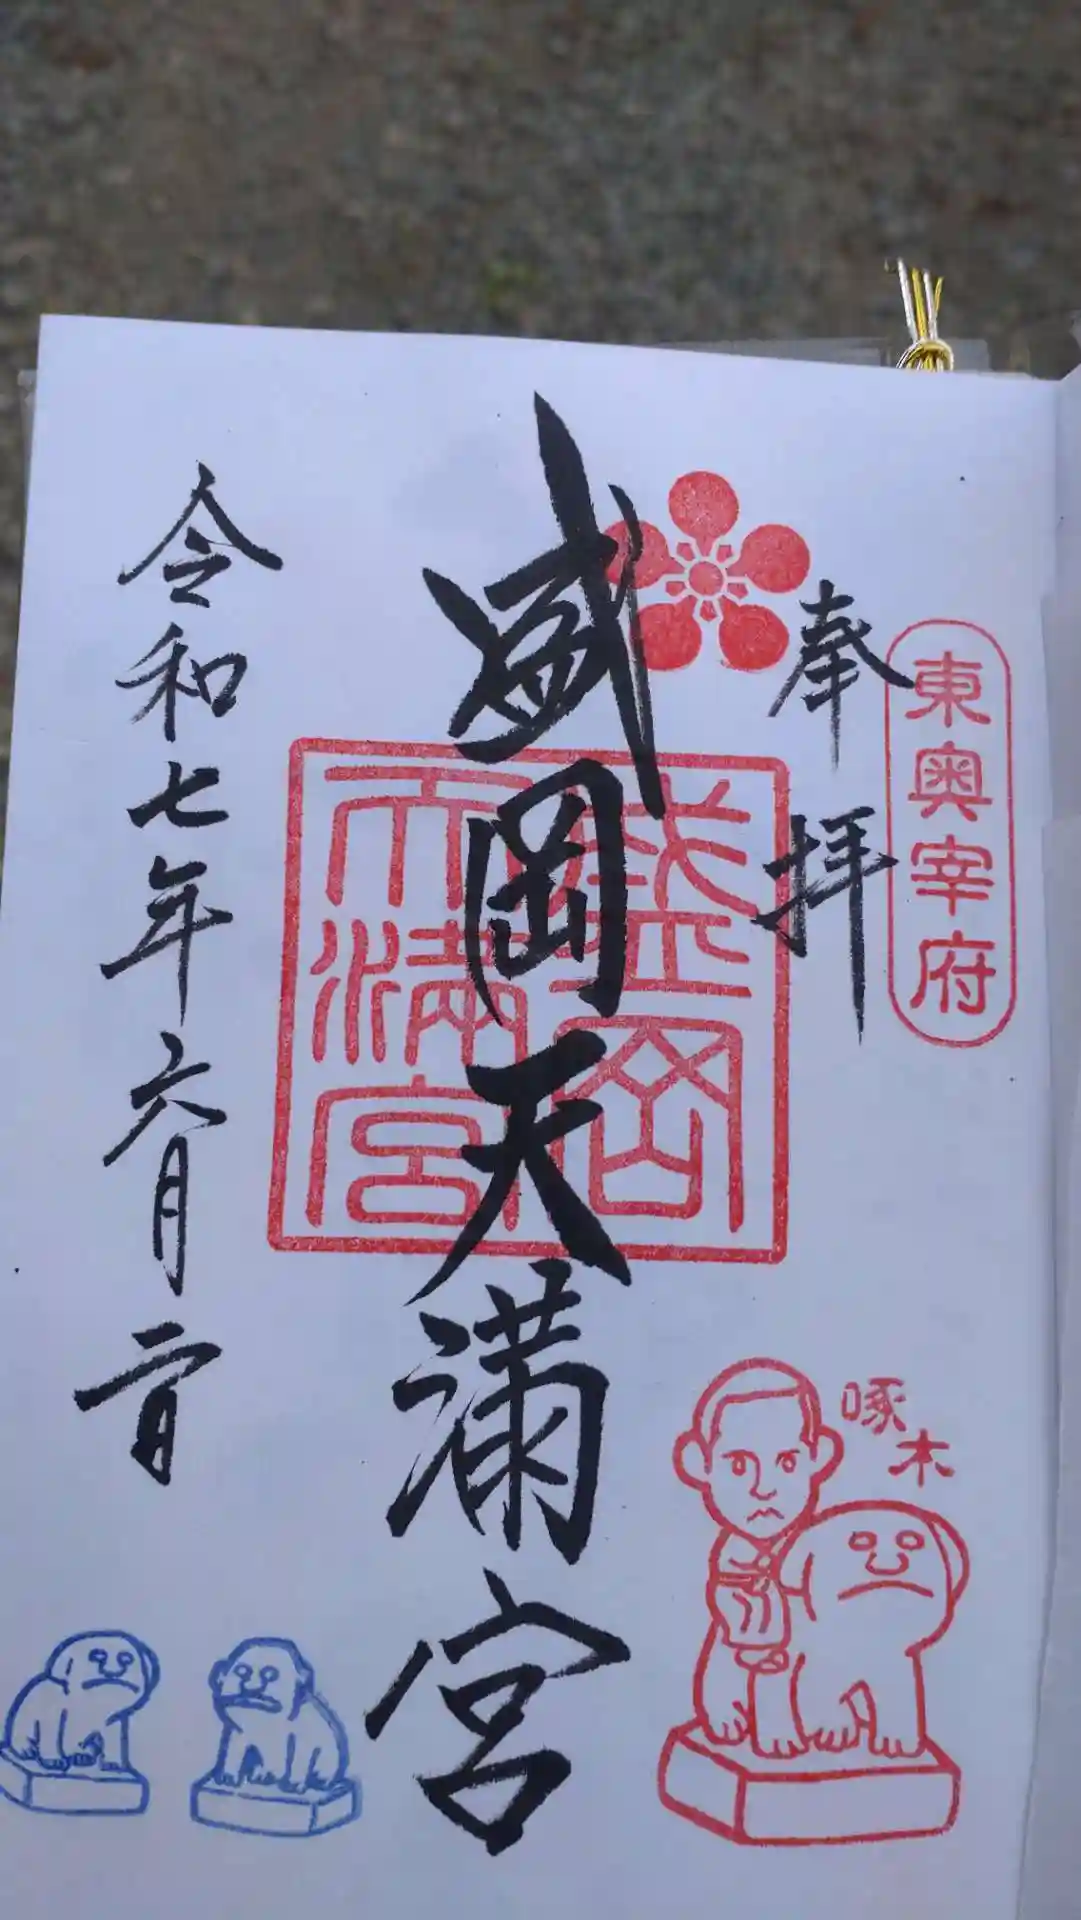 東奥宰府
奉拝
盛岡天満宮
盛岡
天満宮
令和七年六月二日
啄木